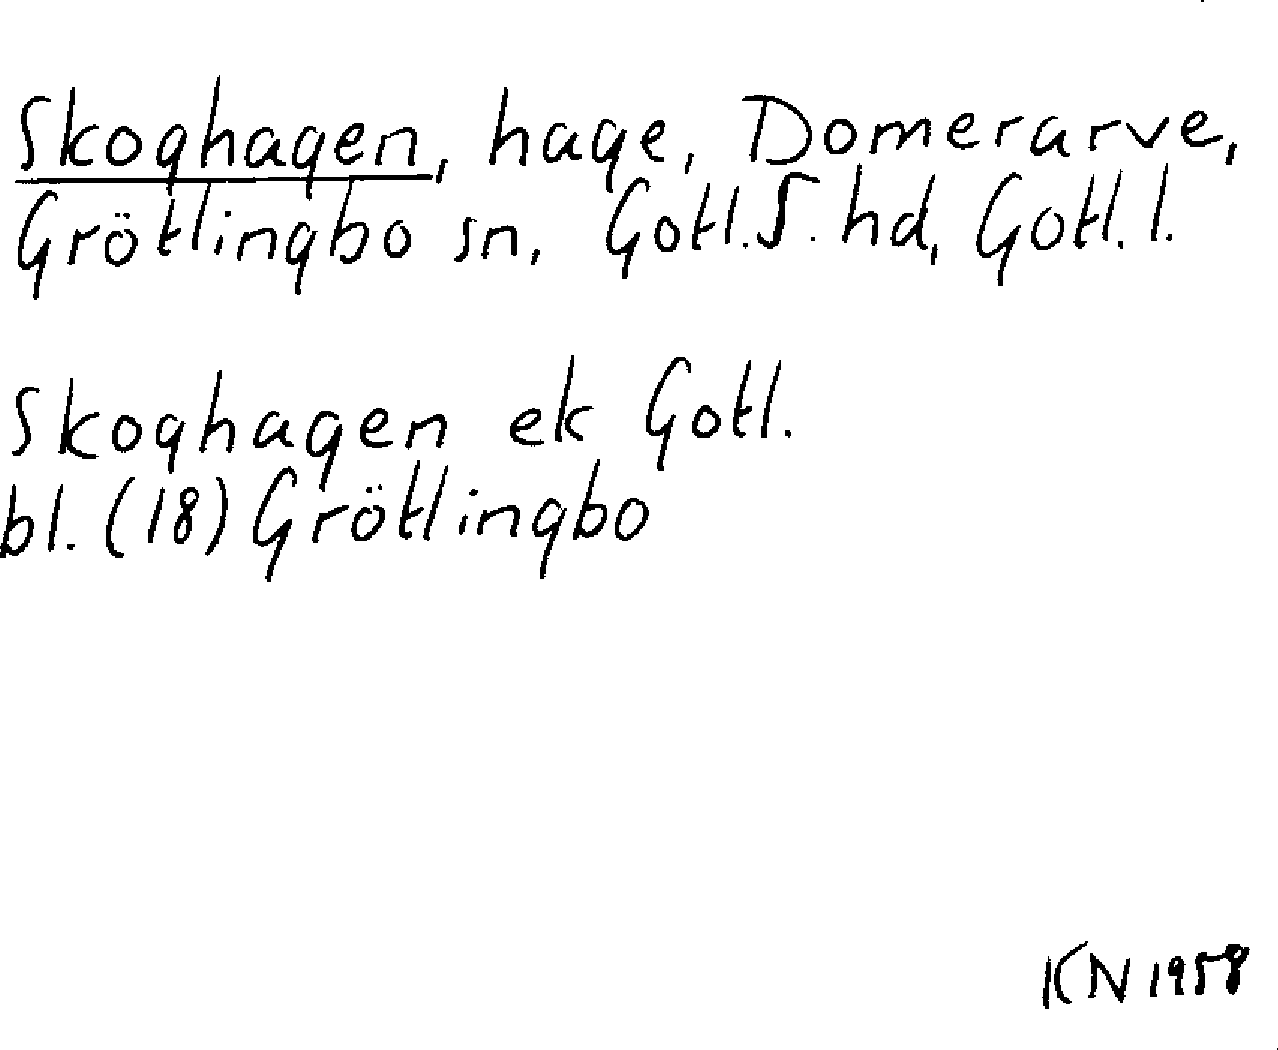 Skoghagen, hage, Domerarve,
Grötlingbo sn, Gotl.S. hd, Gotl. l.
Skoghagen ek Gotl.
bl. (18) Grötlingbo
KN 1958